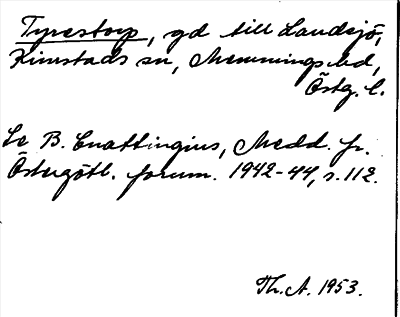 Tyrestorp, gd till Landsjö,
Kimstads sn, Memmings hd,
Östg. l.
Se B. Cnattingius, Medd. fr.
Östergötl. fornm. 1942-44, s. 112.
Th. A. 1953.